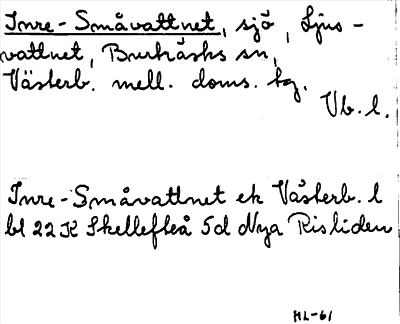 Inre-Småvattnet, sjö, Ljus-
vattnet, Burträsks sn,
Västerb. mell. doms. tg.
Vb. l.
Inre-Småvattnet ek Västerb. l
bl 22 K Skellefteå 5d Nya Risliden
HL-61